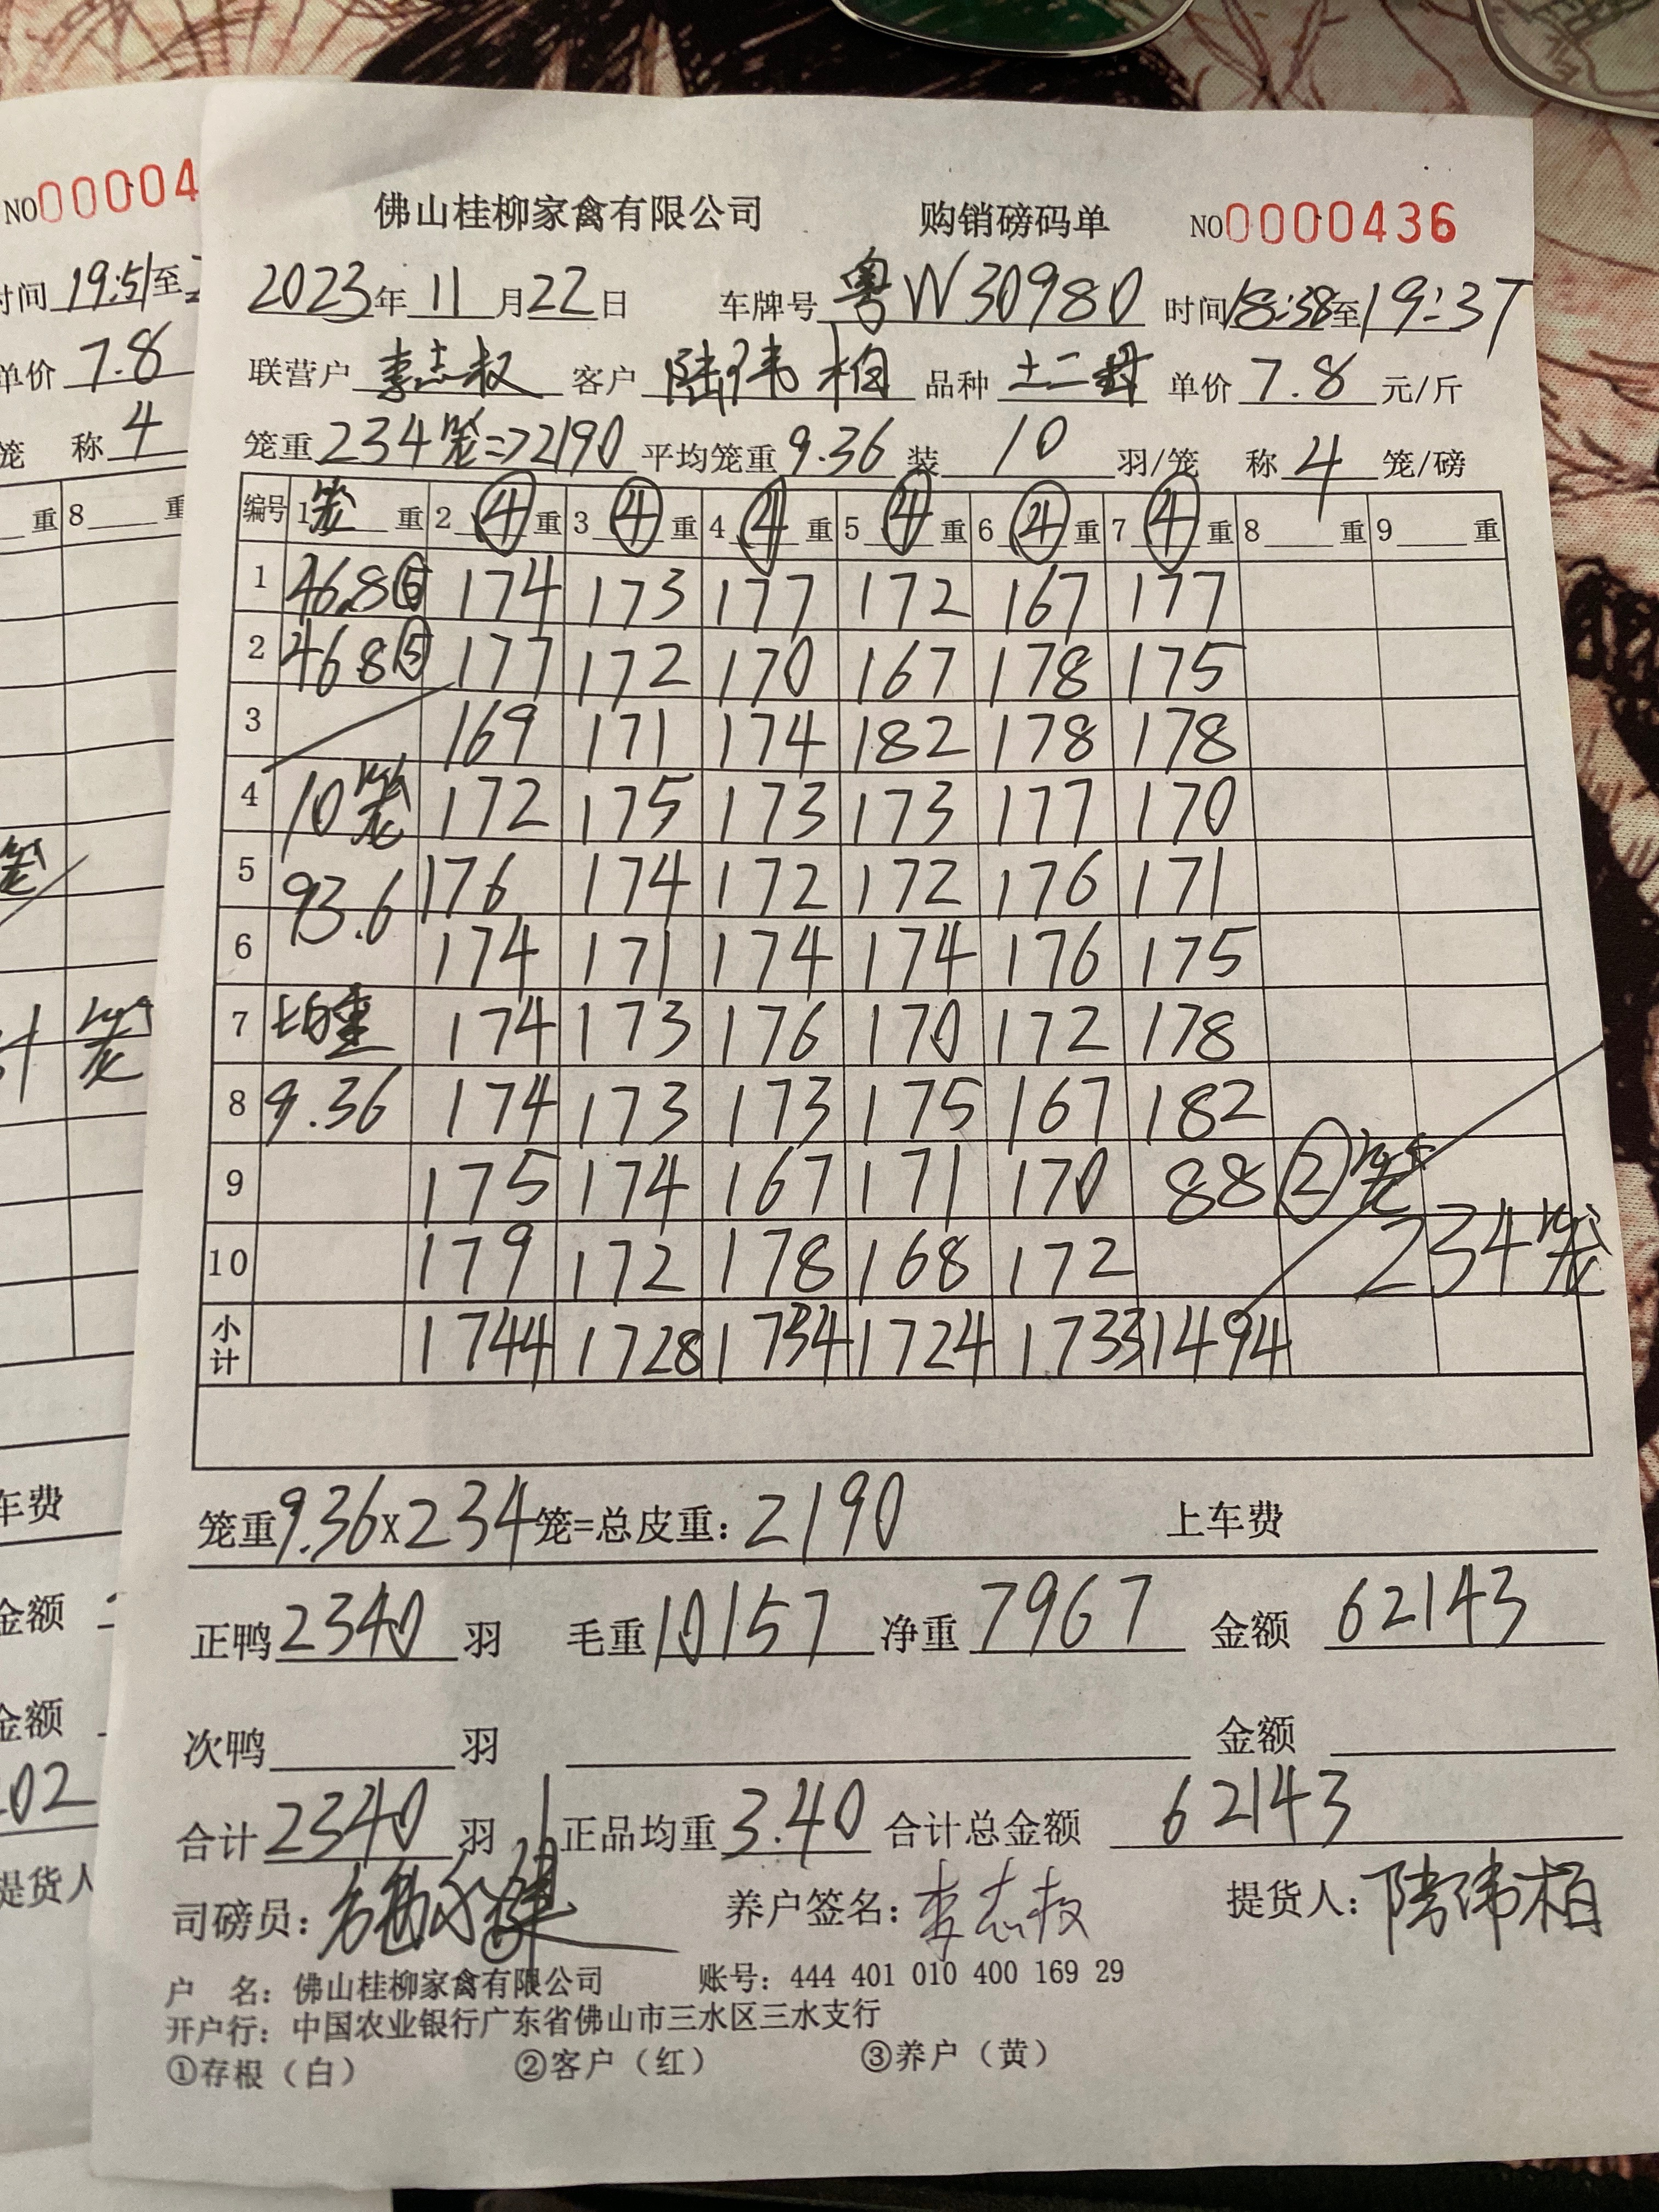 NO00004
时间 19:51 至
单价 7.8
笼 称 4
重 8 重
笼
计 笼
车费
金额
金额
02
提货人
佛山桂柳家禽有限公司 购销磅码单 NO0000436
2023年11月22日 车牌号 粤W30980 时间18:38至19:37
联营户 李志权 客户 陆伟柏 品种 土二 单价 7.8 元/斤
笼重 234笼=>2190 平均笼重 9.36 装 10 羽/笼 称 4 笼/磅
编号 1笼重 2④重 3④重 4④重 5④重 6④重 7④重 8重 9重
1 46.8⑤ 174 173 177 172 167 177
2 46.8⑤ 177 172 170 167 178 175
3 169 171 174 182 178 178
4 10笼 172 175 173 173 177 170
5 93.6 176 174 172 172 176 171
6 174 171 174 174 176 175
7 均重 174 173 176 170 172 178
8 9.36 174 173 173 175 167 182
9 175 174 167 171 170 88②笼
10 179 172 178 168 172 234笼
小计 1744 1728 1734 1724 1733 1494
笼重9.36x234笼=总皮重:2190 上车费
正鸭2340羽 毛重10157 净重7967 金额 62143
次鸭 羽 金额
合计2340羽 正品均重3.40 合计总金额 62143
司磅员: 养户签名:李志权 提货人:陆伟柏
户 名:佛山桂柳家禽有限公司 账号:444 401 010 400 169 29
开户行:中国农业银行广东省佛山市三水区三水支行
①存根(白) ②客户(红) ③养户(黄)